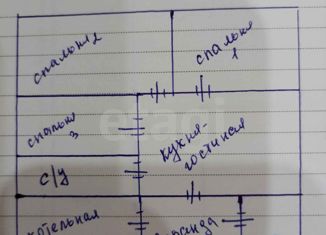 спальня 2
спальня
1
спальня
3
кухня-
гостиная
с/у
котельная
веранда